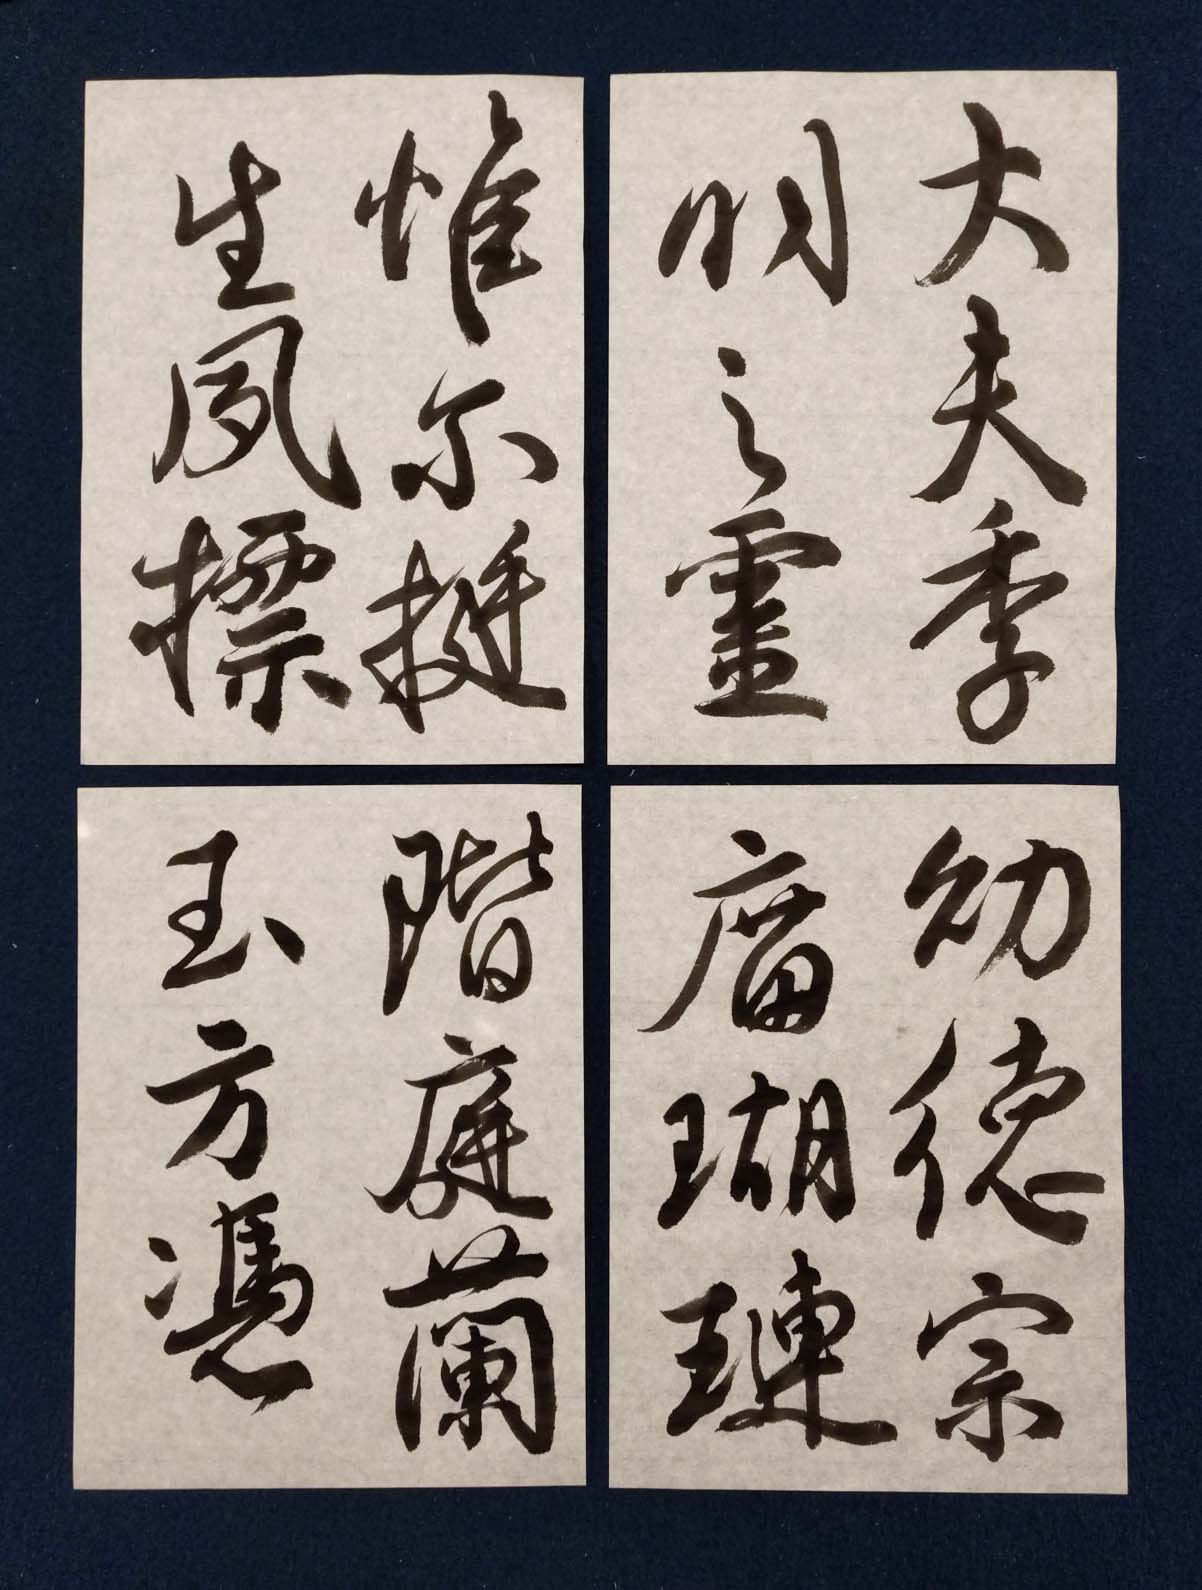 大夫季
明之靈
惟尔挺
生夙標
幼德宗
庿瑚璉
階庭蘭
玉方憑